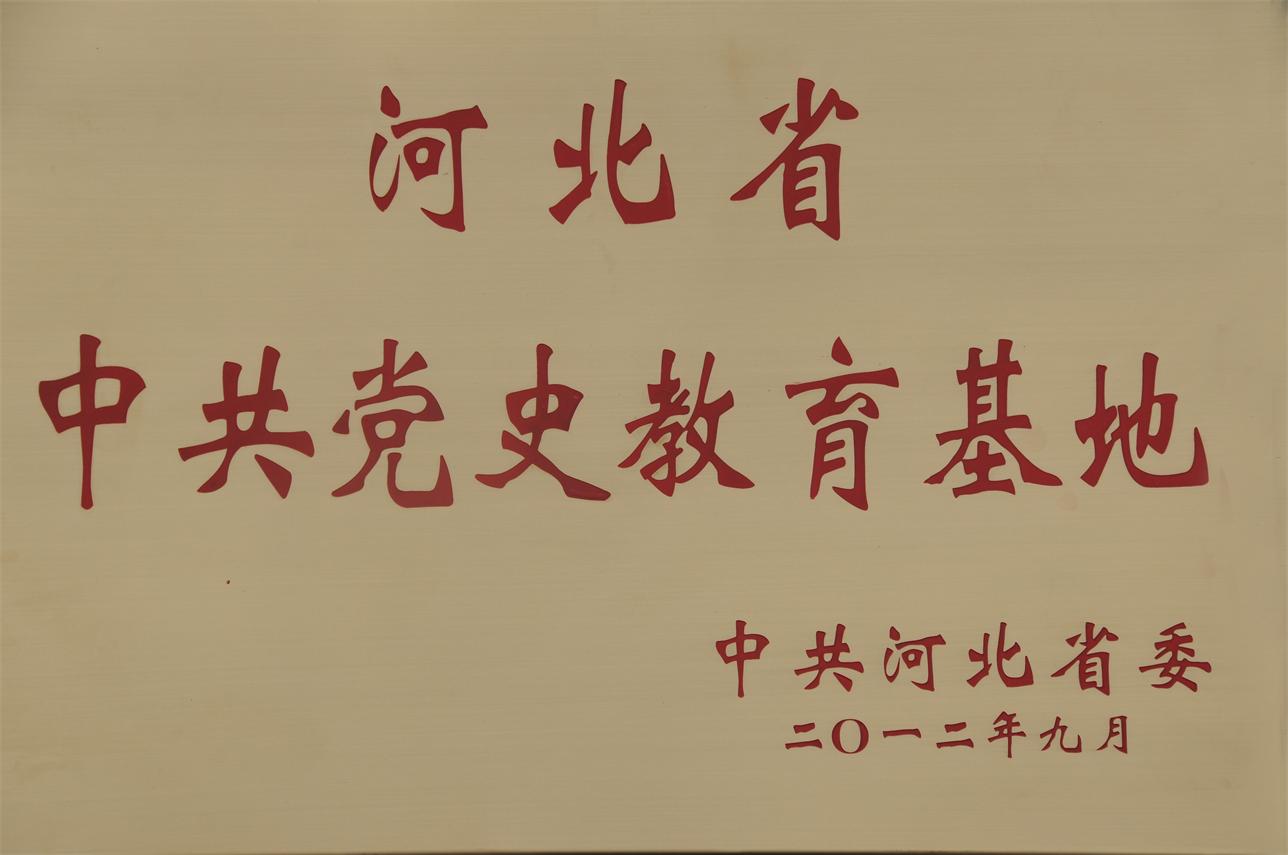 河北省
中共党史教育基地
中共河北省委
二〇一二年九月